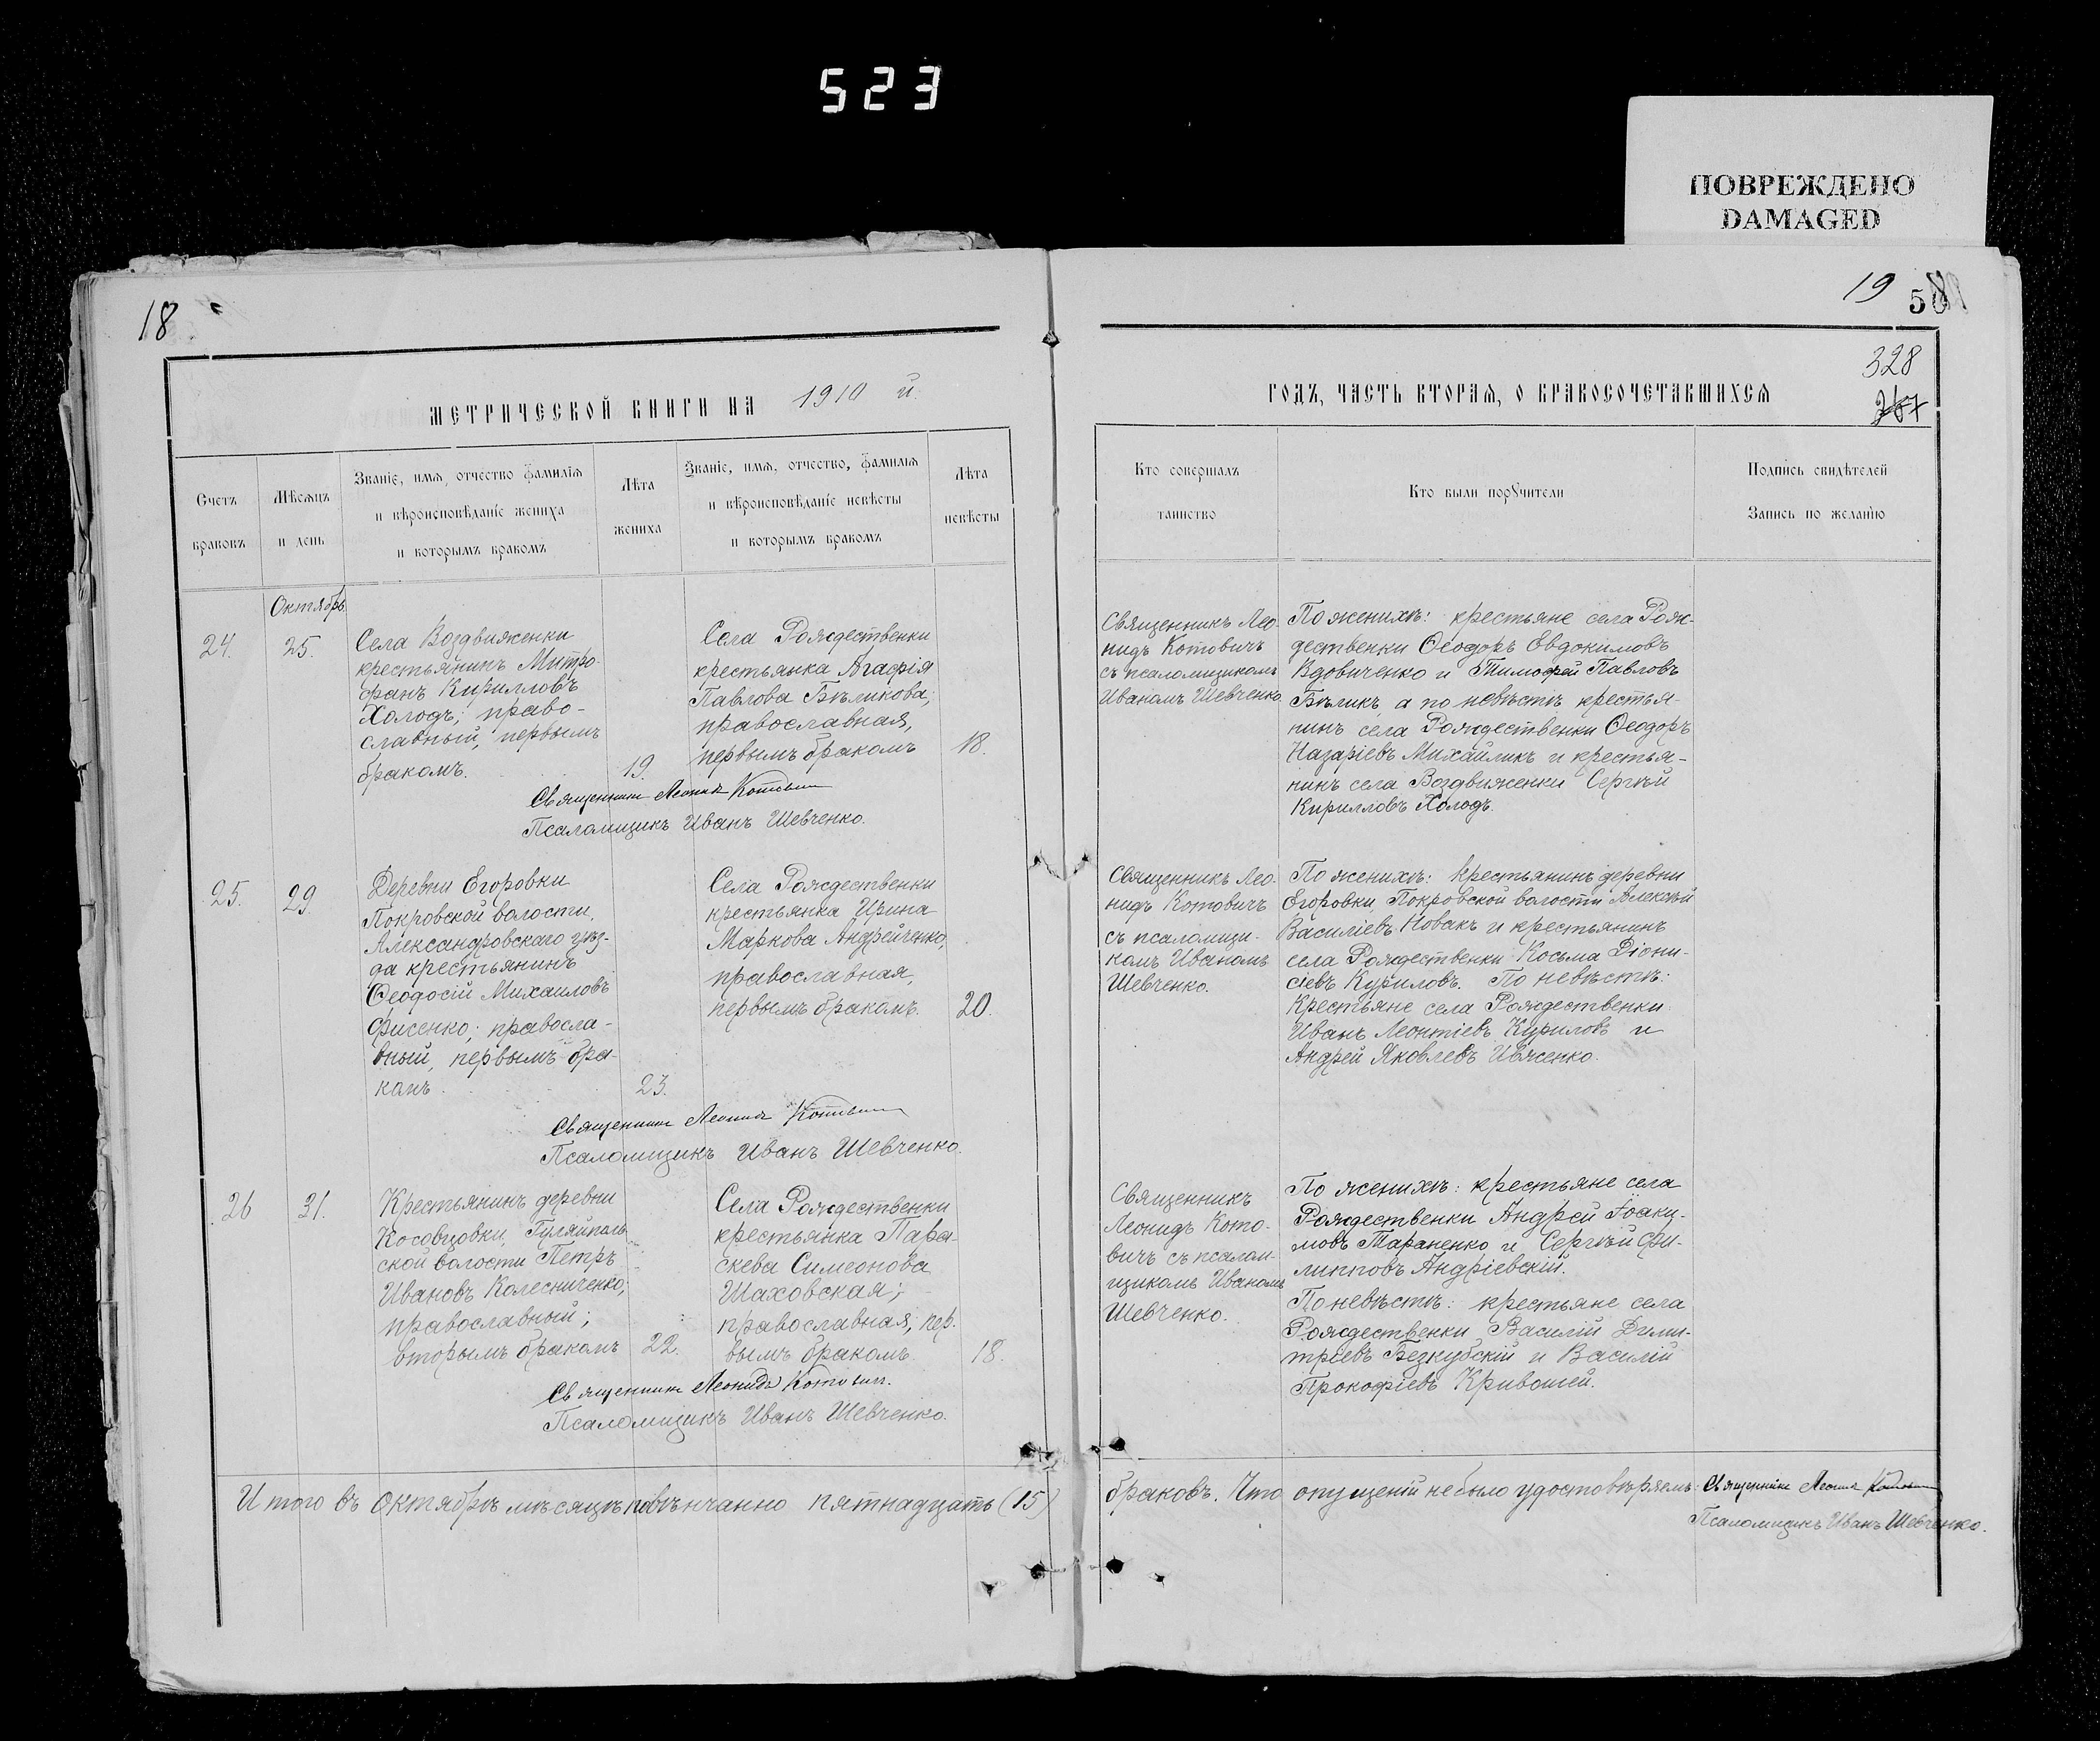 523
ПОВРЕЖДЕНО
DAMAGED
18
19
50
328
267
МЕТРИЧЕСКОЙ КНИГИ НА 1910 й.
ГОДЪ, ЧАСТЬ ВТОРАЯ, О БРАКОСОЧЕТАВШИХСЯ
Счетъ
браковъ
Мѣсяцъ
и день
Званіе, имя, отчество фамилія
и вѣроисповѣданіе жениха
и которымъ бракомъ
Лѣта
жениха
Званіе, имя, отчество, фамилія
и вѣроисповѣданіе невѣсты
и которымъ бракомъ
Лѣта
невѣсты
Кто совершалъ
таинство
Кто были порꙋчители
Подпись свидѣтелей
Запись по желанію
Октябрь
24.
25.
Села Воздвиженки
крестьянинъ Митро-
фанъ Кирилловъ
Холодъ; право-
славный, первымъ
бракомъ.
19.
Села Рождественки
крестьянка Агафія
Павлова Бѣликова;
православная,
первымъ бракомъ
18.
Священникъ Леонидъ Котовичъ
Псаломщикъ Иванъ Шевченко.
Священникъ Лео-
нидъ Котовичъ
съ псаломщикомъ
Иваномъ Шевченко
По женихѣ: крестьяне села Рож-
дественки Ѳеодоръ Евдокимовъ
Вдовиченко и Тимофей Павловъ
Бѣликъ, а по невѣстѣ крестья-
нинъ села Рождественки Ѳеодоръ
Назаріевъ Михайликъ и крестья-
нинъ села Воздвиженки Сергѣй
Кирилловъ Холодъ.
25.
29.
Деревни Егоровки
Покровской волости,
Александровскаго уѣз-
да крестьянинъ
Ѳеодосій Михаиловъ
Фисенко; правосла-
вный, первымъ бра-
комъ
23.
Села Рождественки
крестьянка Ирина
Маркова Андрейченко,
православная,
первымъ бракомъ.
20.
Священникъ Леонидъ Котовичъ
Псаломщикъ Иванъ Шевченко.
Священникъ Лео-
нидъ Котовичъ
съ псаломщи-
комъ Иваномъ
Шевченко.
По женихѣ: крестьянинъ деревни
Егоровки, Покровской волости Алексѣй
Василіевъ Новакъ и крестьянинъ
села Рождественки Косьма Діони-
сіевъ Куриловъ. По невѣстѣ:
Крестьяне села Рождественки
Иванъ Леонтіевъ Куриловъ и
Андрей Яковлевъ Ивженко.
26
31.
Крестьянинъ деревни
Косовцовки, Гуляйполь-
ской волости Петръ
Ивановъ Колесниченко;
православный;
вторымъ бракомъ
22.
Села Рождественки
крестьянка Пара-
скева Симеонова
Шаховская;
православная; пер-
вымъ бракомъ.
18.
Священникъ Леонидъ Котовичъ.
Псаломщикъ Иванъ Шевченко.
Священникъ
Леонидъ Кото-
вичъ съ псалом-
щикомъ Иваномъ
Шевченко.
По женихѣ: крестьяне села
Рождественки Андрей Іоаки-
мовъ Тараненко и Сергѣй Фи-
липповъ Андріевскій.
По невѣстѣ: крестьяне села
Рождественки Василій Дими-
тріевъ Безкубскій и Василій
Прокофіевъ Кривошей.
Итого въ Октябрѣ мѣсяцѣ повѣнчанно пятнадцать (15)
браковъ. Что опущеній не было удостовѣряемъ: Священникъ Леонидъ Котовичъ
Псаломщикъ Иванъ Шевченко.